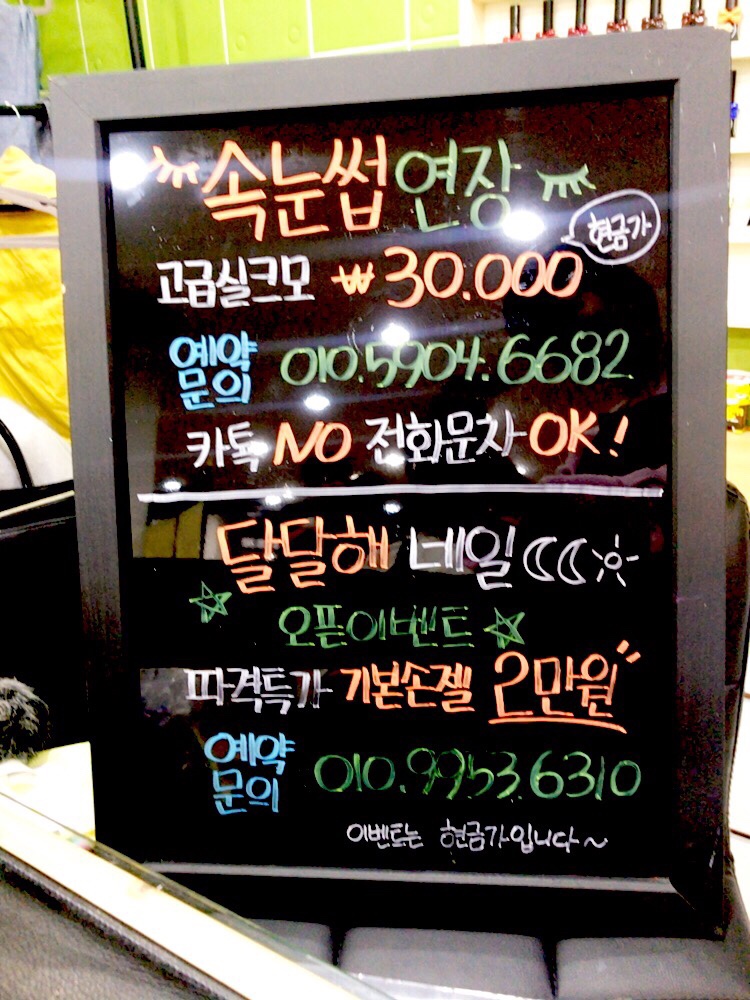 속눈썹 연장
현금가
고급실크모 ₩30.000
예약문의 010.5904.6682
카톡 NO 전화문자 OK!
달달해 네일
오픈이벤트
파격특가 기본손젤 2만원"
예약문의 010.9953.6310
이벤트는 현금가입니다~